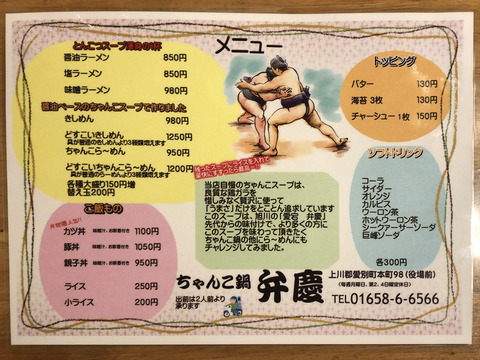 メニュー
とんこつスープ渾身の1杯
醤油ラーメン 850円
塩ラーメン 850円
味噌ラーメン 980円
醤油ベースのちゃんこスープで作りました
きしめん 980円
どすこいきしめん 1250円
具が普通のきしめんより3種類増えます
ちゃんこら〜めん 950円
どすこいちゃんこら〜めん 1200円
具が普通のら〜めんより3種類増えます
各種大盛り150円増
替え玉200円
ご飯もの
カツ丼 味噌汁、お新香付き 1100円
豚丼 味噌汁、お新香付き 1050円
親子丼 味噌汁、お新香付き 950円
ライス 250円
小ライス 200円
トッピング
バター 130円
海苔 3枚 130円
チャーシュー 1枚 150円
ソフトドリンク
コーラ
サイダー
オレンジ
カルピス
ウーロン茶
ホットウーロン茶
シークァーサーソーダ
巨峰ソーダ
各300円
残ったスープにライスを入れて
豪快にすすったら最高〜!!
当店自慢のちゃんこスープは、
良質な鶏ガラを
惜しみなく贅沢に使って
「うまさ」だけをとことん追求しています
このスープは、旭川の「愛宕 弁慶」
先代からの味付けで、より多くの方に
このスープを味わって頂きたく
ちゃんこ鍋の他にら〜めんにも
チャレンジしてみました。
ちゃんこ鍋 弁慶
出前は2人前より
承ります
上川郡愛別町本町98(役場前)
(毎週月曜日、第2、4日曜定休日)
TEL01658-6-6566